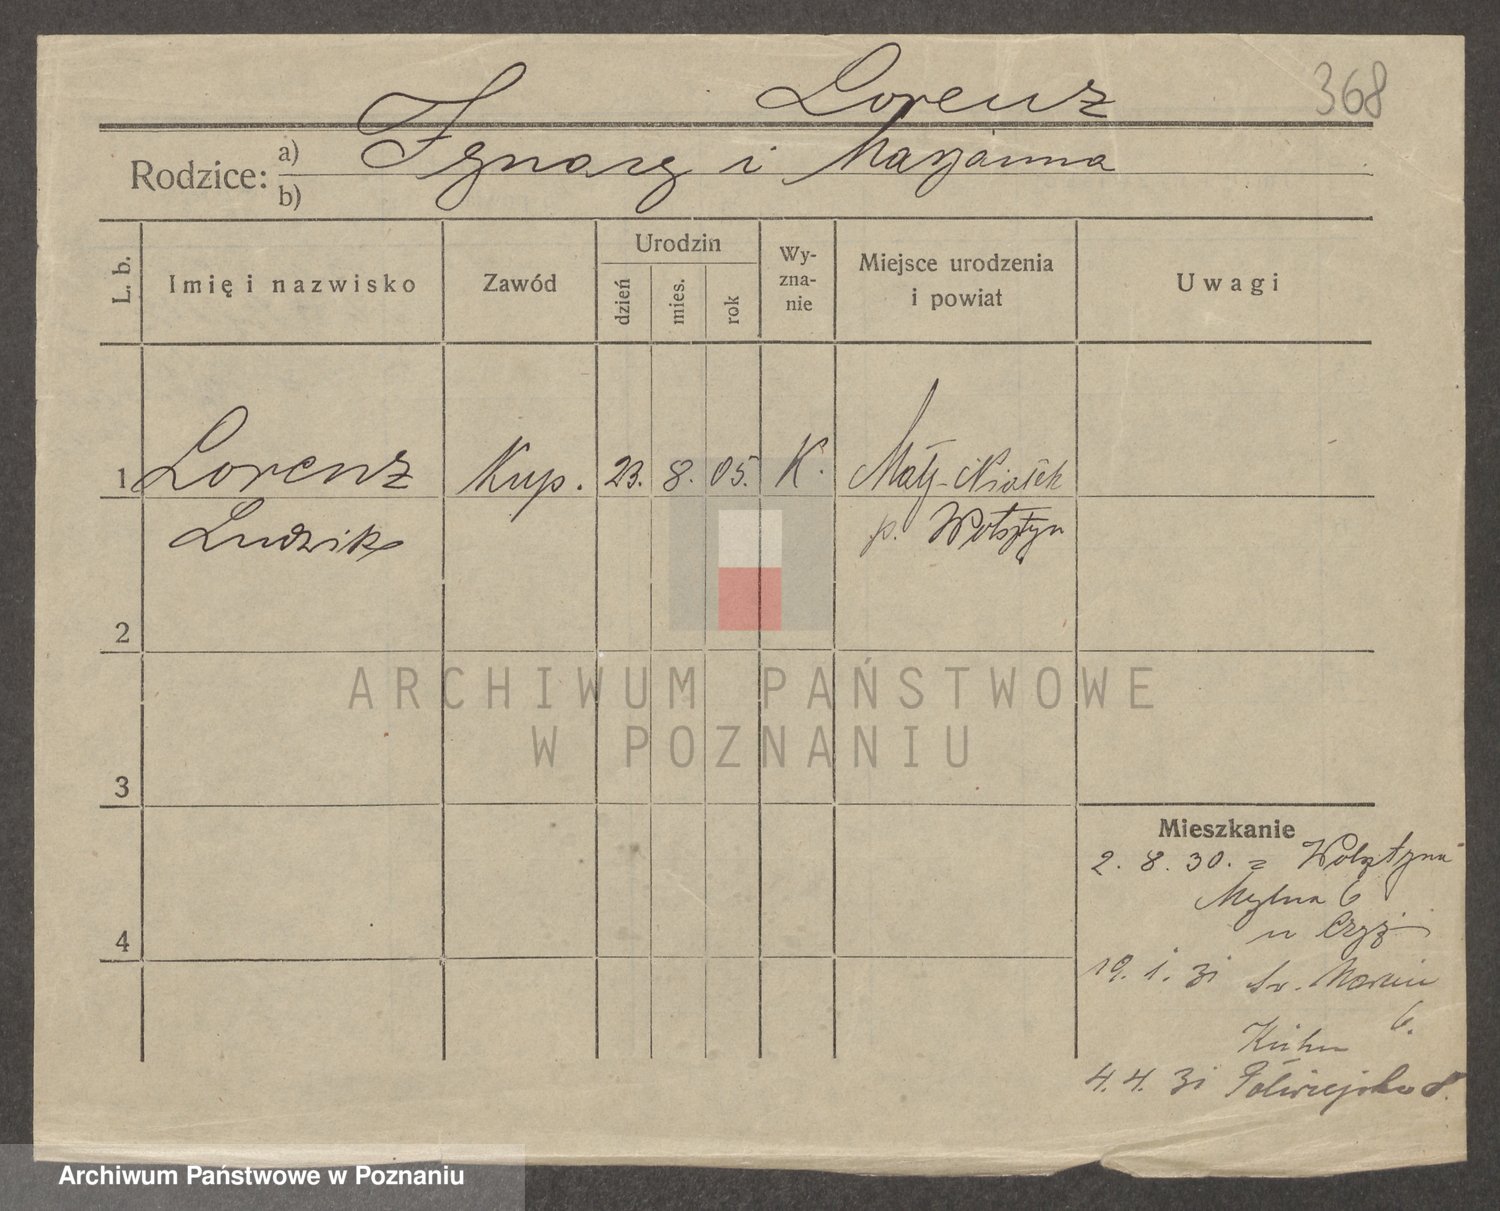 Lorenz
368
Rodzice: a) b)
Ignacy i Maryanna
L. b.
Imię i nazwisko
Zawód
Urodzin
dzień
mies.
rok
Wy-
zna-
nie
Miejsce urodzenia
i powiat
Uwagi
1 Lorenz Kup. 23. 8. 05. K. Mały-
Ludwik p. Wolsztyn
2
3
4
Mieszkanie
2. 8. 30. z Wolsztyna
Mylna 6
u
19. 1. 31 św. Marcin
6.
Kühn
4. 4. 31 Półwiejska 8.
ARCHIWUM PAŃSTWOWE
W POZNANIU
Archiwum Państwowe w Poznaniu